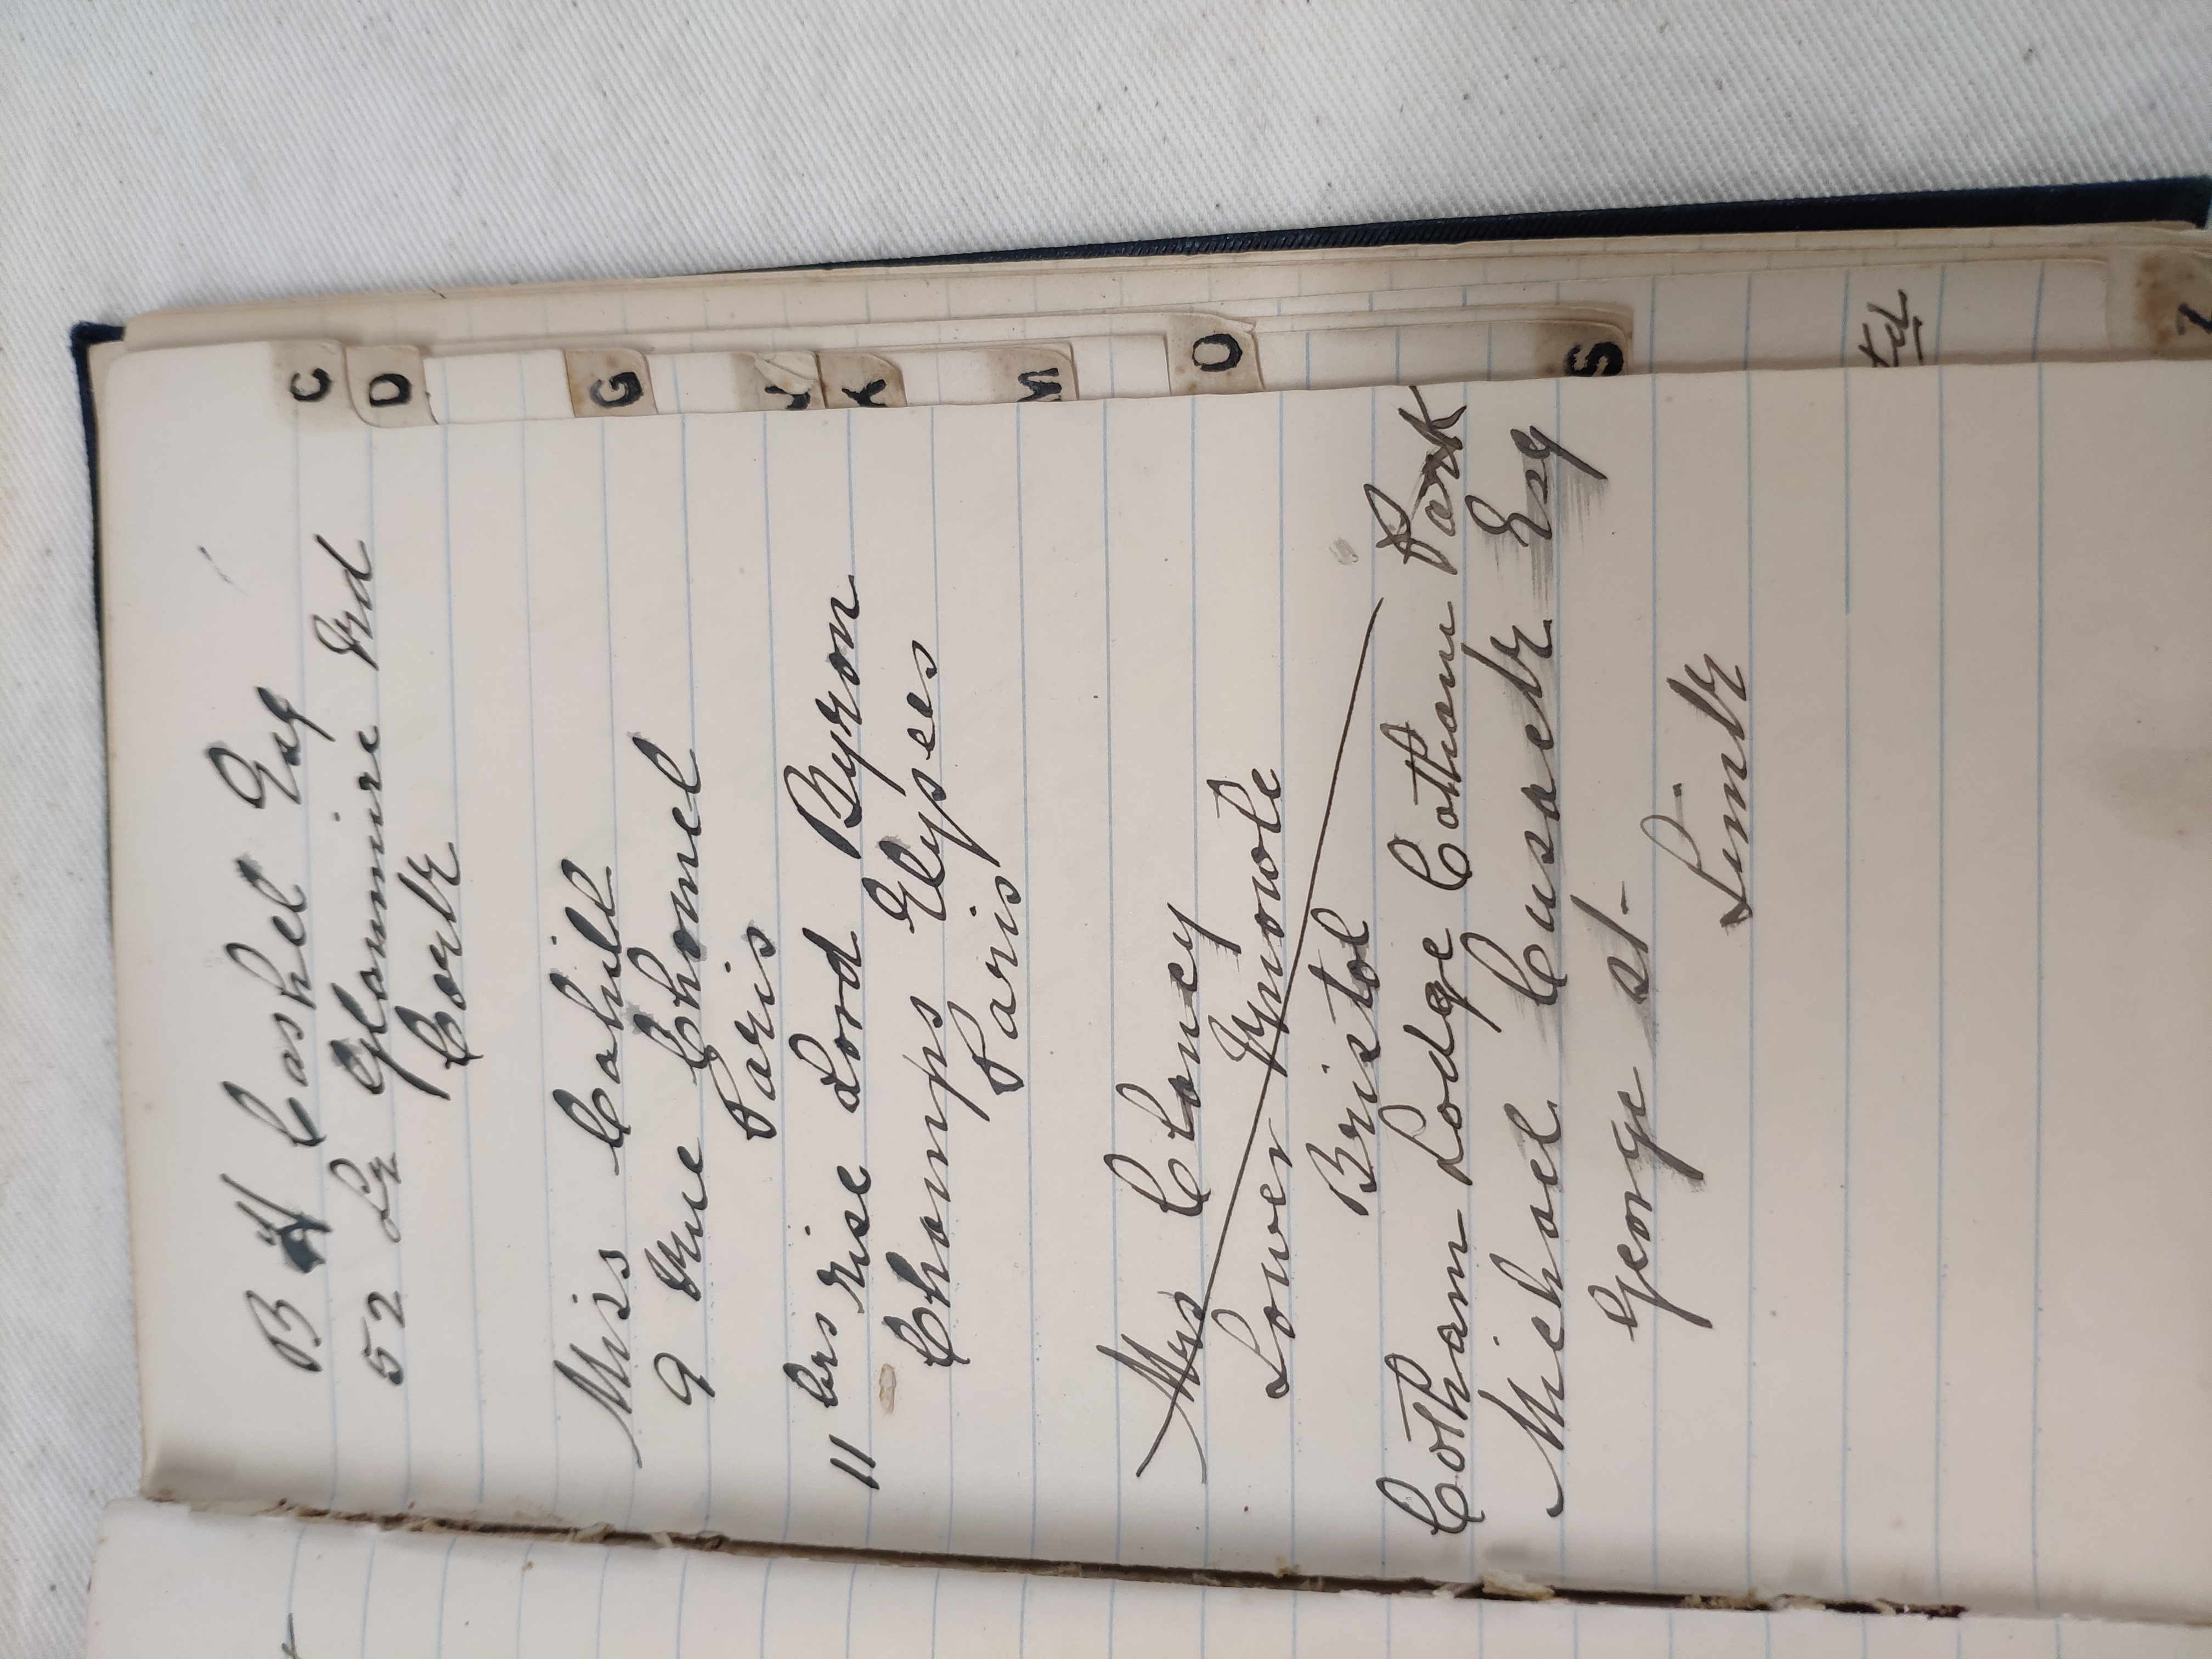 B H Cashel Esq
52 Lr Glanmire Rd
Cork
Miss Cahill
9 Rue Chomel
Paris
11 bis rise Lord Byron
Champs Elysees
Paris
Mrs Clancy
Lower Knowle
Bristol
Cotham Lodge Cotham Park
Michael Cusack Esq
George St.
Limk
C
D
G
J
K
M
O
S
td